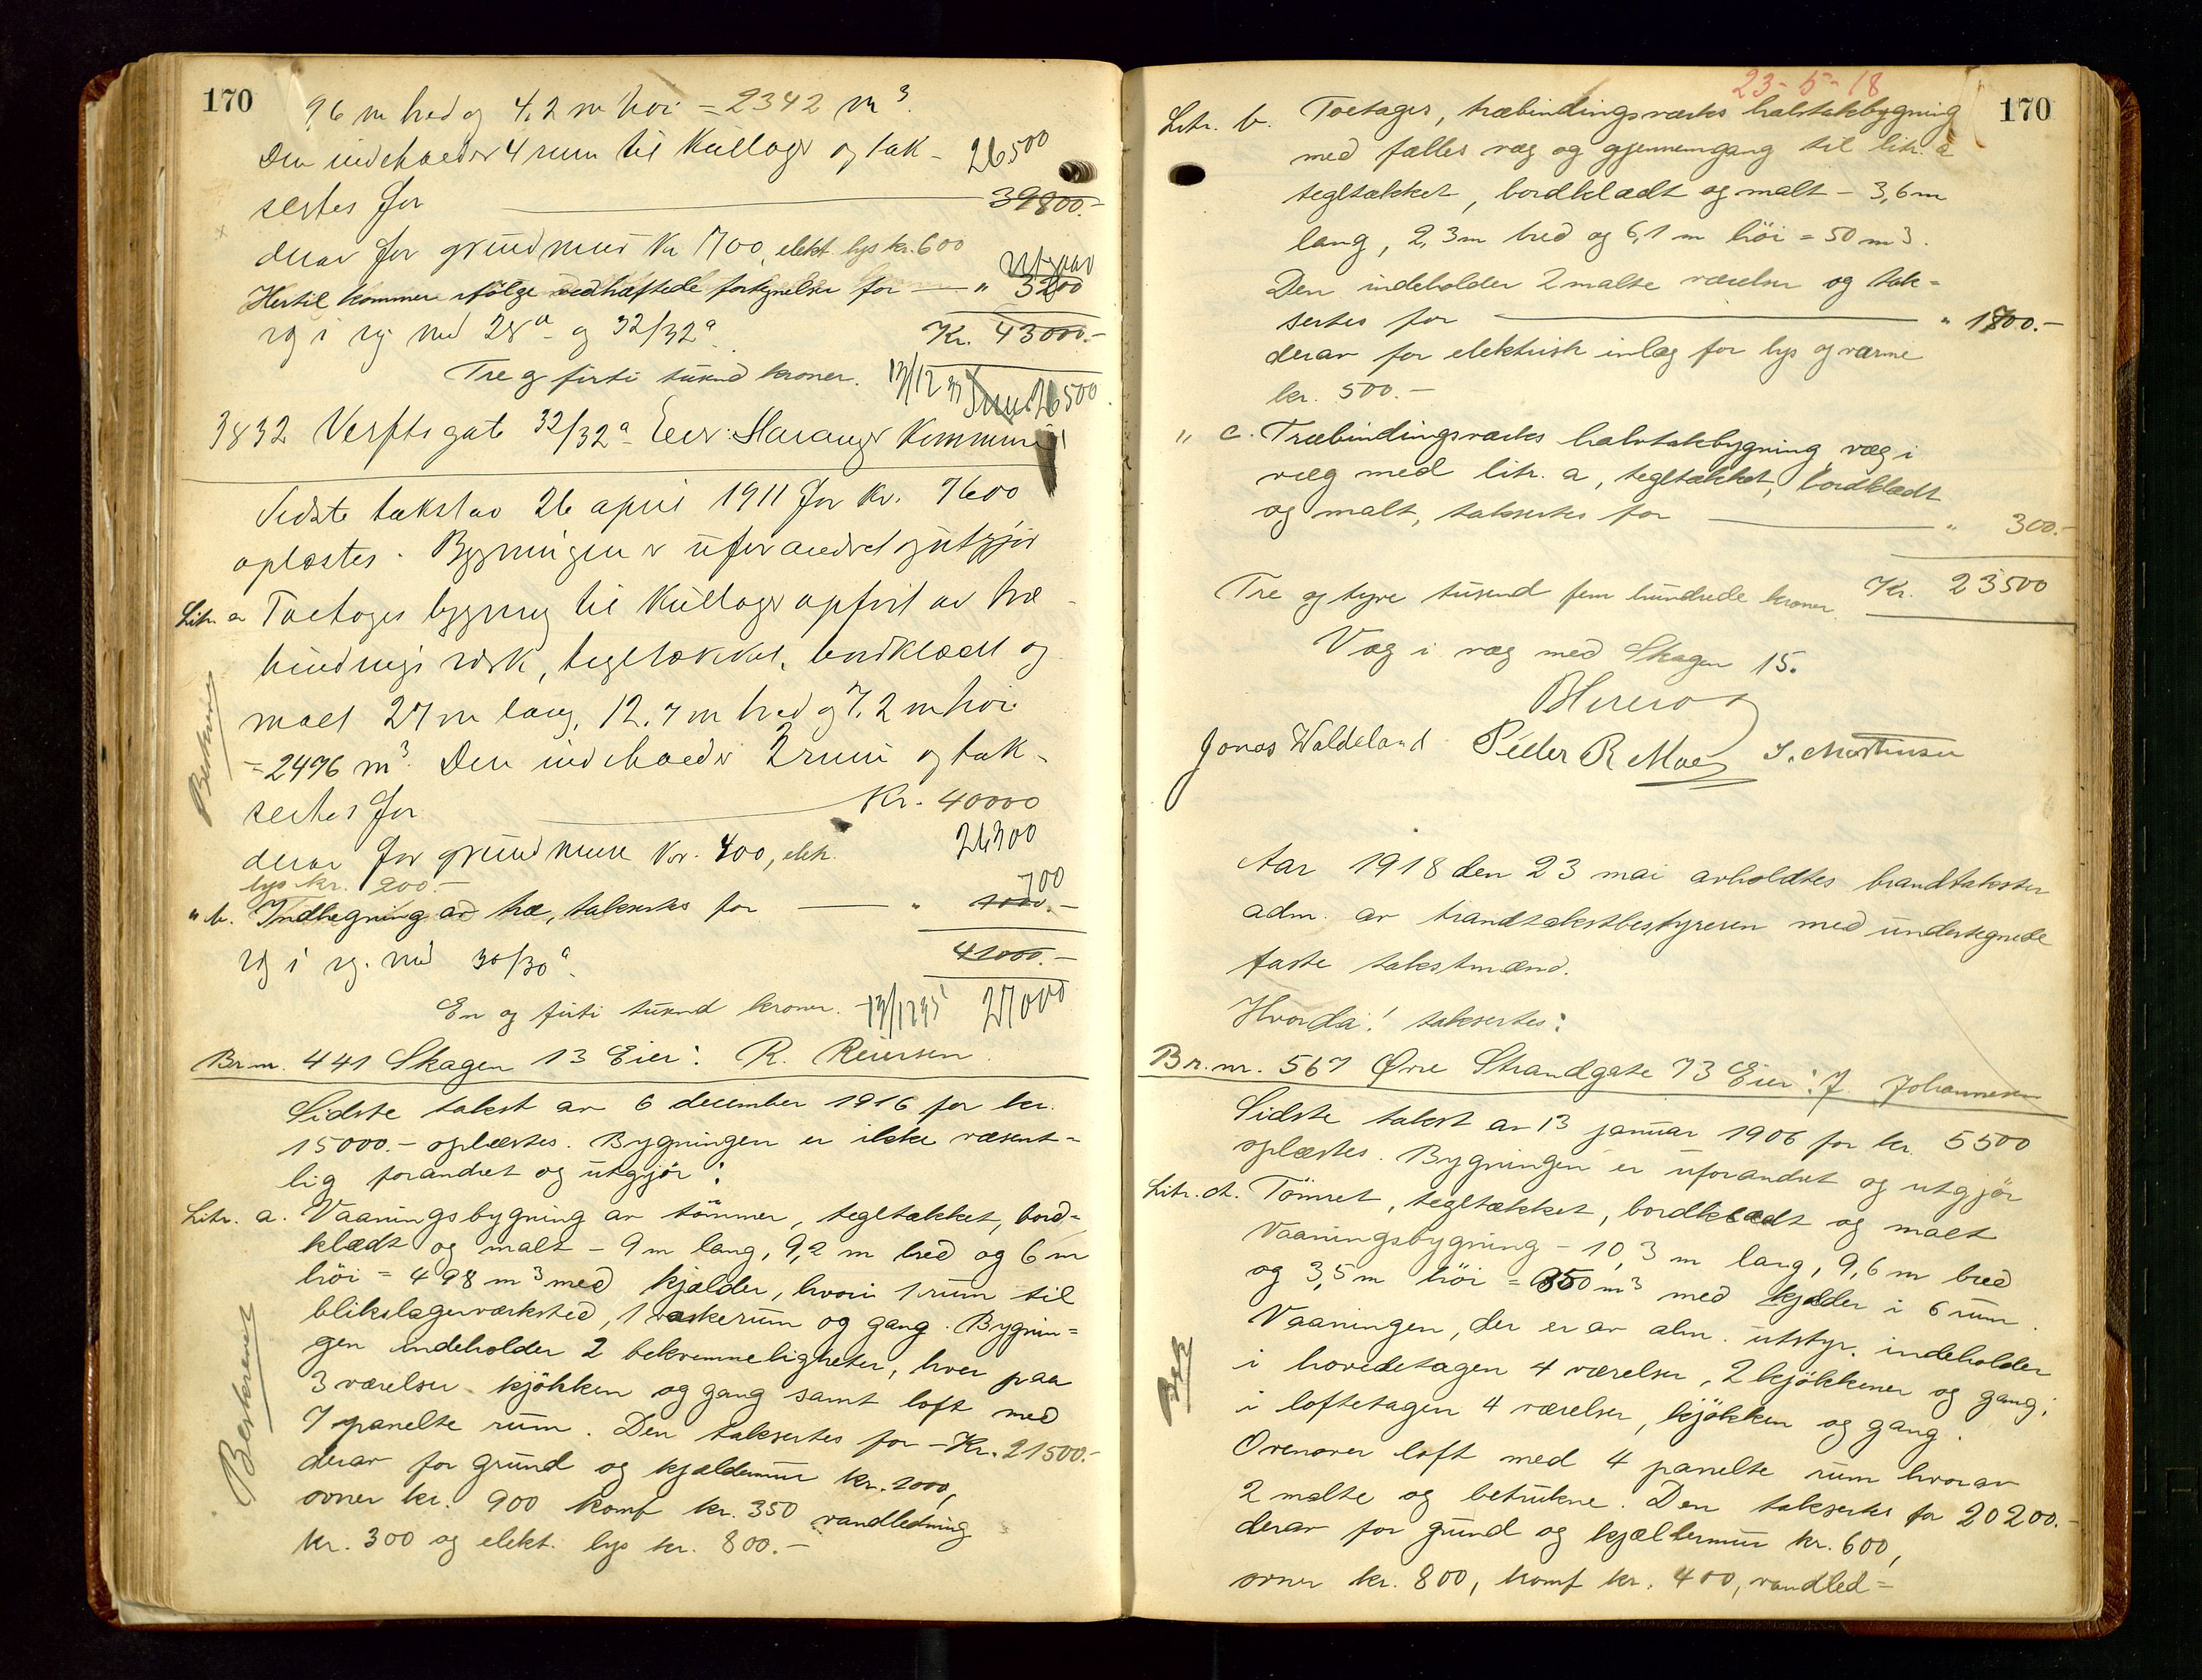 170
9,6 m bred og 4,2 m høi = 2342 m³.
Den indeholder 4 rum til Kullager og tak-
26500
sertes for 39800.-
derav for grundmur Kr 700, elekt. lys kr. 600
utgaar
Hertil kommer ifølge vedhæftede fortegnelse for — " 3200
væg i væg med 28ª og 32/32ª. Kr. 43000.-
Tre og firti tusind kroner. 13/12 35 26500
3832 Verftsgate 32/32ª Eier: Stavanger Kommune
Sidste takst av 26 april 1911 for kr. 7600
oplæstes. Bygningen er uforandret og utgjør
Litr. a Toetages bygning til Kullager opført av træ-
bindingsverk, tegltækket, bordklædt og
malt 27 m lang, 12.7 m bred og 7,2 m høi
= 2496 m³. Den indeholder 2 rum og tak-
sertes for Kr. 40000
26300
derav for grundmur kr. 400, elekt.
lys kr. 200.-
700
" b. Indhegning av træ, taksertes for — " 1000.-
væg i væg med 30/30ª. 41000.-
En og firti tusind kroner. 13/12 35 27000
Beskrevet
Br.nr. 441 Skagen 13 Eier: R. Reiersen.
Sidste takst av 6 december 1916 for kr.
15000.- oplæstes. Bygningen er ikke væsent-
lig forandret og utgjør:
Litr. a. Vaaningsbygning av tømmer, tegltækket, bord-
klædt og malt - 9 m lang, 9,2 m bred og 6 m
høi = 498 m³ med kjælder, hvori 1 rum til
blikslagerværksted, 1 vaskerum og gang. Bygnin-
gen indeholder 2 bekvemmeligheter, hver paa
3 værelser, kjøkken og gang samt loft med
7 panelte rum. Den taksertes for - Kr. 21500.-
derav for grund og kjældermur kr. 2000,
ovner kr. 900 komf kr. 350 vandledning
kr. 300 og elekt. lys kr. 800.-
Beskrevet
23-5-18
170
Litr. b. Toetages, træbindingsværks halvtakbygning
med fælles væg og gjennemgang til litr. a
tegltækket, bordklædt og malt - 3,6 m
lang, 2,3 m bred og 6,1 m höi = 50 m³.
Den indeholder 2 malte værelser og tak-
sertes for — " 1700.-
derav for elektrisk inlæg for lys og varme
kr. 500.-
" c. Træbindingsværks halvtakbygning væg i
væg med litr. a, tegltækket, bordklædt
og malt, taksertes for — " 300.-
Tre og tyve tusend fem hundrede kroner. Kr. 23500
Væg i væg med Skagen 15.
Jonas Waldeland Peder R Moe J. Martinsen
Aar 1918 den 23 mai avholdtes brandtakster
adm. av brandtakstbestyreren med undertegnede
faste takstmænd.
Hvorda! taksertes:
Br.nr. 567 Øvre Strandgate 73 Eier: J. Johannesen
Sidste takst av 13 januar 1906 for kr. 5500
oplæstes. Bygningen er uforandret og utgjør
Litr. a. Tömret, tegltækket, bordklædt og malt
Vaaningsbygning - 10,3 m lang, 9,6 m bred
og 3,5 m höi = 350 m³ med kjælder i 6 rum.
Vaaningen, der er av alm. utstyr, indeholder
i hovedetagen 4 værelser, 2 kjøkkener og gang;
i loftetagen 4 værelser, kjøkken og gang.
Ovenover loft med 4 panelte rum hvorav
2 malte og betrukne. Den taksertes for 20200.-
derav for grund og kjældermur kr. 600,
ovner kr. 800, komf kr. 400, vandled-
Besk